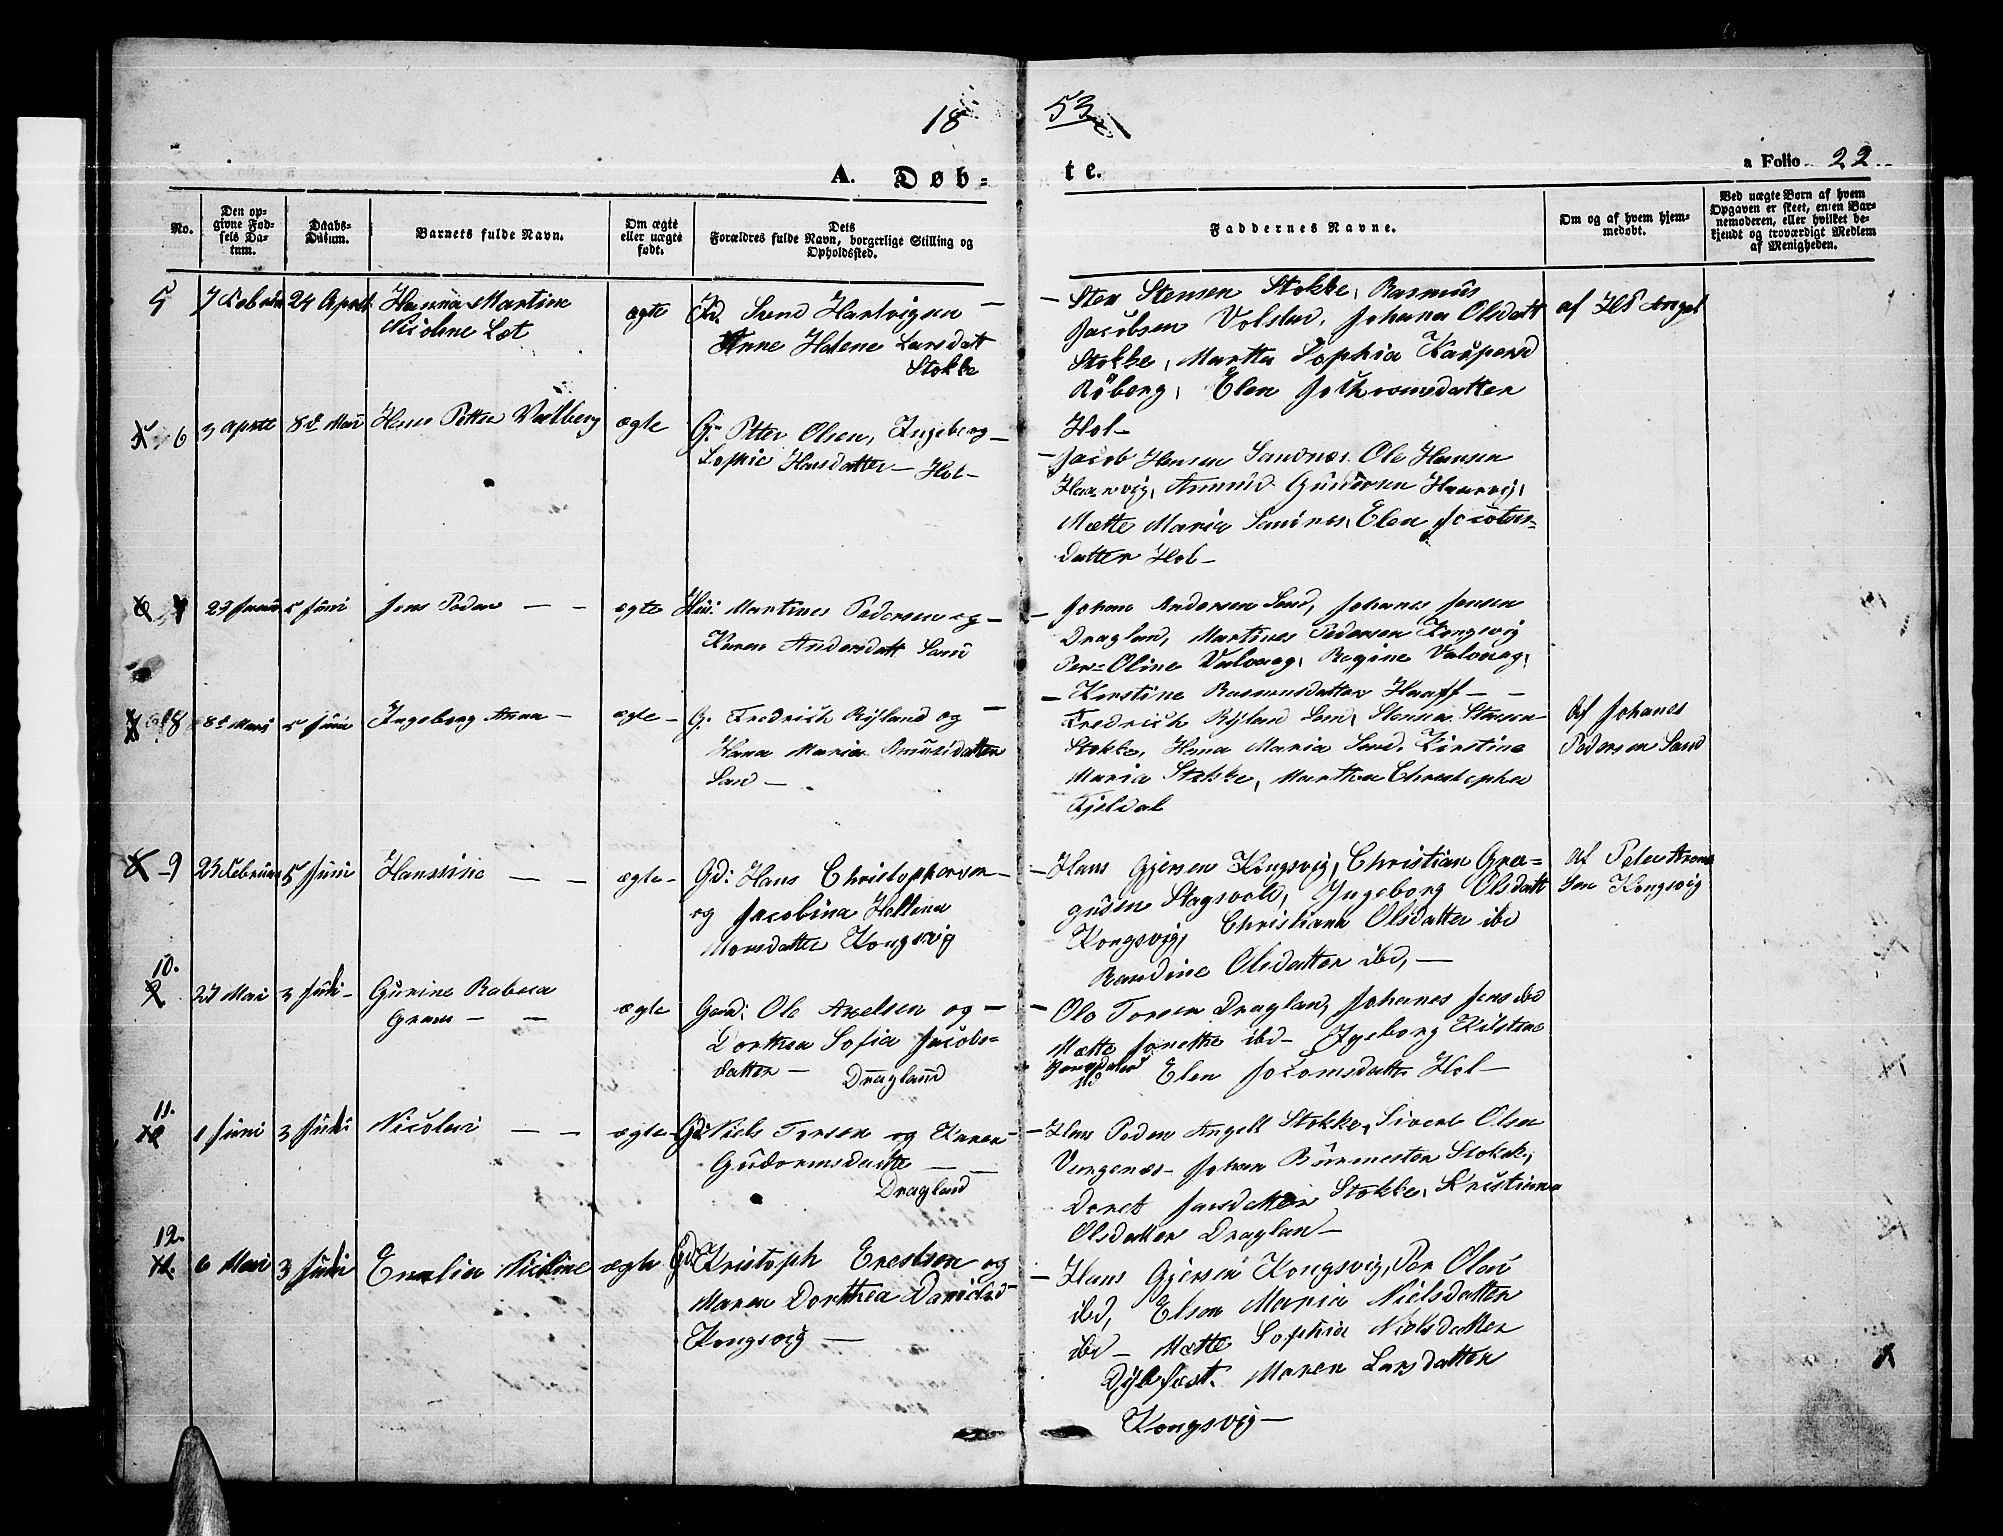 18 53
A. Døb- te.
a Folio 22
No.
Den op-
givne Fød-
sels Da-
tum.
Daabs-
Datum.
Barnets fulde Navn.
Om ægte
eller uægte
født.
Dets
Forældres fulde Navn, borgerlige Stilling og
Opholdssted.
Faddernes Navne.
Om og af hvem hjem-
medøbt.
Ved uægte Born af hvem
Opgaven er skeet, enten Bar-
nemoderen, eller hvilket be-
kjendt og troværdigt Medlem
af Menigheden.
5 7 Februar 24 April Hanna Martine
Nicoline Lot
ægte
Svend Hartvigsen —
Anne Helene Larsdatt
Stokke
— Sten Stensen Stokke, Rasmus
Jacobsen Volstad, Johana Olsdatt
Stokke, Martha Sophia Kaspersd
Røberg, Elen
Hol —
af Angel
6 3 April 8de Mai Hans Petter Valberg ægte
G. Peter Olsen, Ingeborg —
Sophie Hansdatter — Hol —
— Jacob Hansen Sandnes. Ole Hansen
Haarvig, Amund Haarvig,
Mætte Maria Sandnes, Elen
datter Hol —
7 5 Juni Jens Peder — — ægte
Martines Pedersen og —
Karen Andersdatt Sand
— Johan Andersen Sand, Johanes Jensen
Dragland, Martines Pedersen Kongsvig
Oline Valvaag, Regine Valvaag,
— Kirstine Rasmusdatter Haaff — —
8 8de Mars 5 Juni Ingeborg Anna — ægte —
G. Fredrich Ryland og —
Hana Maria Amundsdatter
Sand —
Fredrich Rylan Sand, Stensen
Stokke, Hana Maria Sand, Kirstine
Maria Stokke, Martha Christopha
Fjeldal
Af Johanes
Pedersen Sand
9 23 Februar 5 Juni Hansine — — ægte —
Gd: Hans Christophersen —
og Jacobina Hellina
Monsdatter Kongsvig
— Hans Gjersen Kongsvig, Christian Gree=
gusen Stagsvold, Ingeborg Olsdatt
Kongsvig, Christiana Olsdatter ibd
Randine Olsdatter ibd, —
af Peter
sen Kongsvig
10. 27 Mai 3 Juli — Gurine Rebeca
Gram — —
ægte
Gaard: Ole Axelsen og —
Dorthea Sofia Jacobs=
datter — Dragland
— Ole Torsen Draglan, Johanes Jens ibd
Mætte Jonette ibd — Igeborg Kirstine
ibd Elen Hol —
11. 1 Juni 3 Juli Nicolai — — ægte
Gd: Niels Torsen og Karen —
Gudormsdatter — —
Dragland
— Hans Peder Angell Stokke, Sivert Olsen
Vangenæs — Johan Burmester Stokke,
Doret Jansdatter Stokke, Kristiana
Olsdatter Draglan —
12. 6 Mai 3 Juli Emelia Nicoline ægte
Gd: Kristoph Erestsen og
Maren Dorthea Danielsd
Kongsvig —
— Hans Gjersen Kongsvig, Per Olau
ibd, Elson Maria Nielsdatter
ibd — Mætte Sophia Nielsdatter
Dybfæst. Maren Larsdatter
Kongsvig —